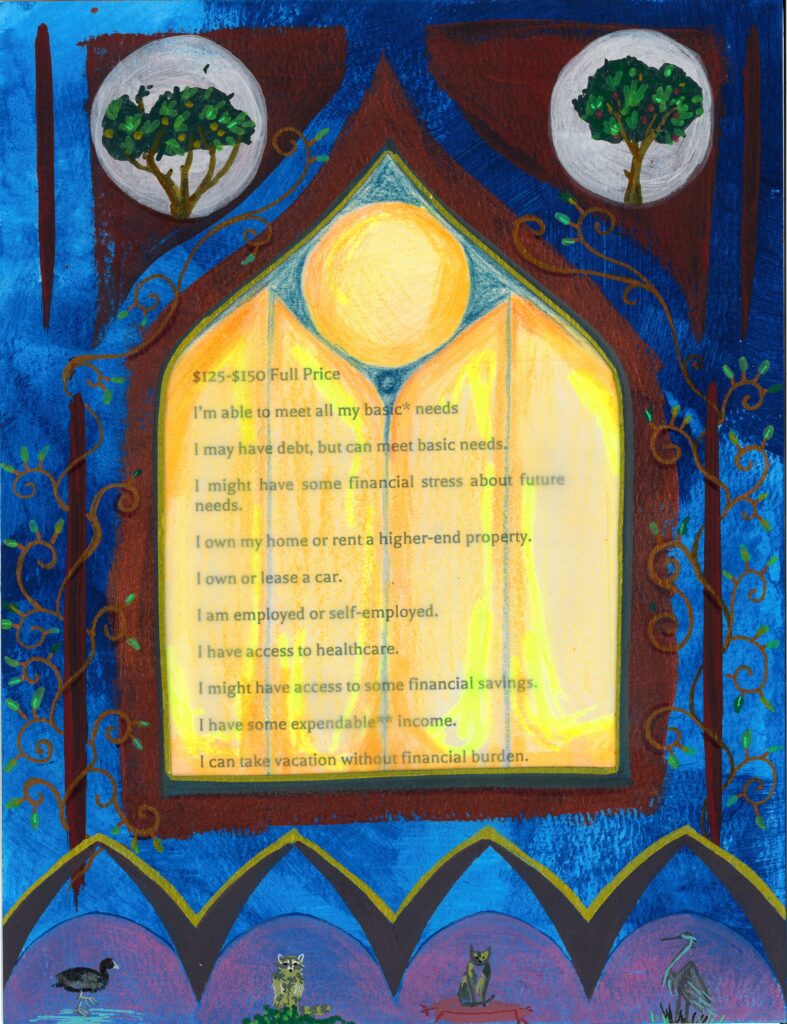 $125-$150 Full Price
I'm able to meet all my basic* needs
I may have debt, but can meet basic needs.
I might have some financial stress about future
needs.
I own my home or rent a higher-end property.
I own or lease a car.
I am employed or self-employed.
I have access to healthcare.
I might have access to some financial savings.
I have some expendable** income.
I can take vacation without financial burden.